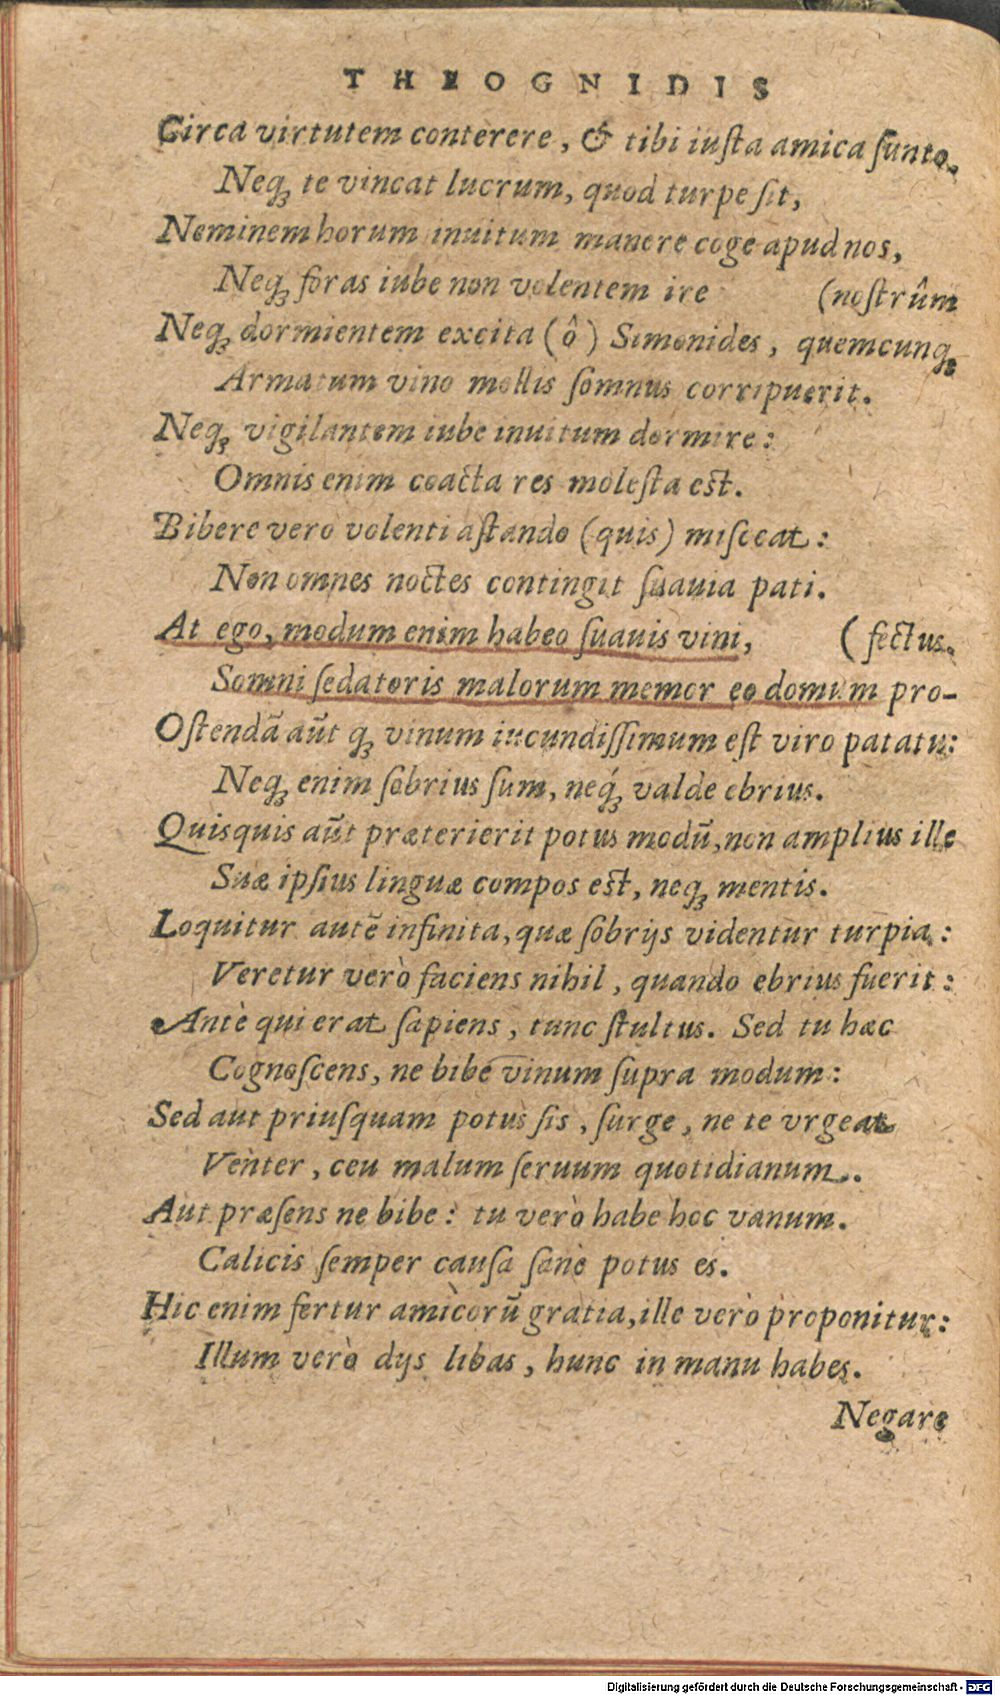 THEOGNIDIS
Circa virtutem conterere, & tibi iusta amica sunto.
Neq; te vincat lucrum, quod turpe sit,
Neminem horum inuitum manere coge apud nos,
Neq; foras iube non volentem ire (nostrûm
Neq; dormientem excita (ô) Simonides, quemcunq;
Armatum vino mollis somnus corripuerit.
Neq; vigilantem iube inuitum dormire:
Omnis enim coacta res molesta est.
Bibere verò volenti astando (quis) misceat:
Non omnes noctes contingit suauia pati.
At ego, modum enim habeo suauis vini, (fectus.
Somni sedatoris malorum memor eo domum pro-
Ostendā aūt q; vinum iucundissimum est viro patatu:
Neq; enim sobrius sum, neq́; valde ebrius.
Quisquis aūt præterierit potus modū, non amplius ille
Suæ ipsius linguæ compos est, neq; mentis.
Loquitur autē infinita, quæ sobrijs videntur turpia:
Veretur verò faciens nihil, quando ebrius fuerit:
Antè qui erat sapiens, tunc stultus. Sed tu hæc
Cognoscens, ne bibe vinum supra modum:
Sed aut priusquam potus sis, surge, ne te vrgeat
Venter, ceu malum seruum quotidianum.
Aut præsens ne bibe: tu verò habe hoc vanum.
Calicis semper causa sanè potus es.
Hic enim fertur amicorū gratia, ille verò proponitur:
Illum verò dijs libas, hunc in manu habes.
Negare
Digitalisierung gefördert durch die Deutsche Forschungsgemeinschaft - DFG